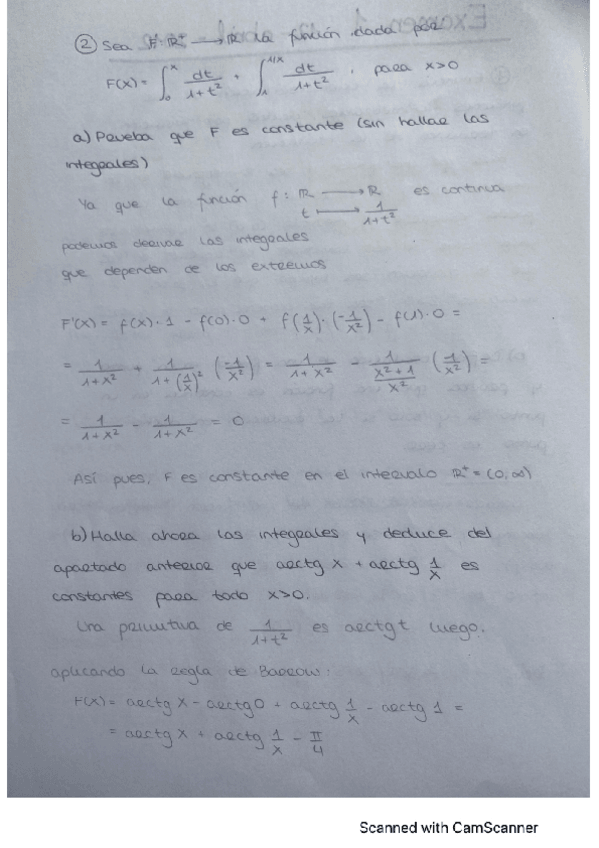 ② Sea F: ℝ⁺ → ℝ la función dada por
F(x) = ∫₀ˣ dt/(1+t²) + ∫₁^(1/x) dt/(1+t²), para x>0
a) Prueba que F es constante (sin hallar las
integrales)
Ya que la función f: ℝ → ℝ es continua
t ⟼ 1/(1+t²)
podemos derivar las integrales
que dependen de los extremos
F'(x) = f(x)·1 - f(0)·0 + f(1/x)·(-1/x²) - f(1)·0 =
= 1/(1+x²) + 1/(1+(1/x)²) (-1/x²) = 1/(1+x²) - 1/((x²+1)/x²) (1/x²) =
= 1/(1+x²) - 1/(1+x²) = 0
Así pues, F es constante en el intervalo ℝ⁺ = (0,∞)
b) Halla ahora las integrales y deduce del
apartado anterior que arctg x + arctg 1/x es
constantes para todo x>0.
Una primitiva de 1/(1+t²) es arctg t luego.
aplicando la regla de Barrow:
F(x) = arctg x - arctg 0 + arctg 1/x - arctg 1 =
= arctg x + arctg 1/x - π/4
Scanned with CamScanner